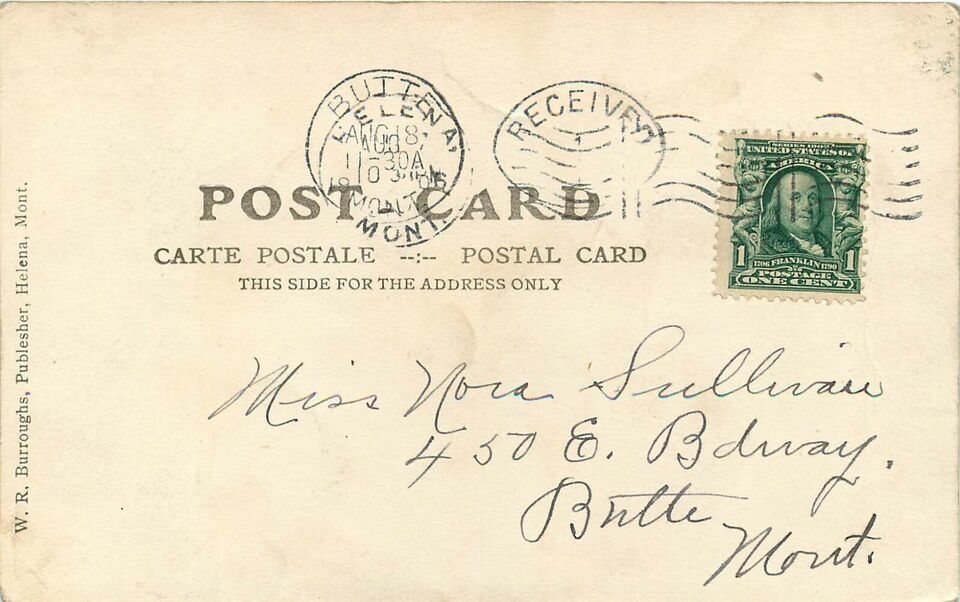 BUTTE
HELENA,
AUG 18
AUG
11-30A
MONT.
MONT.
RECEIVED
SERIES 1902
UNITED STATES OF
AMERICA
1 1706 FRANKLIN 1790 1
POSTAGE
ONE CENT
POST CARD
CARTE POSTALE --:-- POSTAL CARD
THIS SIDE FOR THE ADDRESS ONLY
Miss Nora Sullivan
450 E. Bdway.
Butte
Mont.
W. R. Burroughs, Publesher, Helena, Mont.